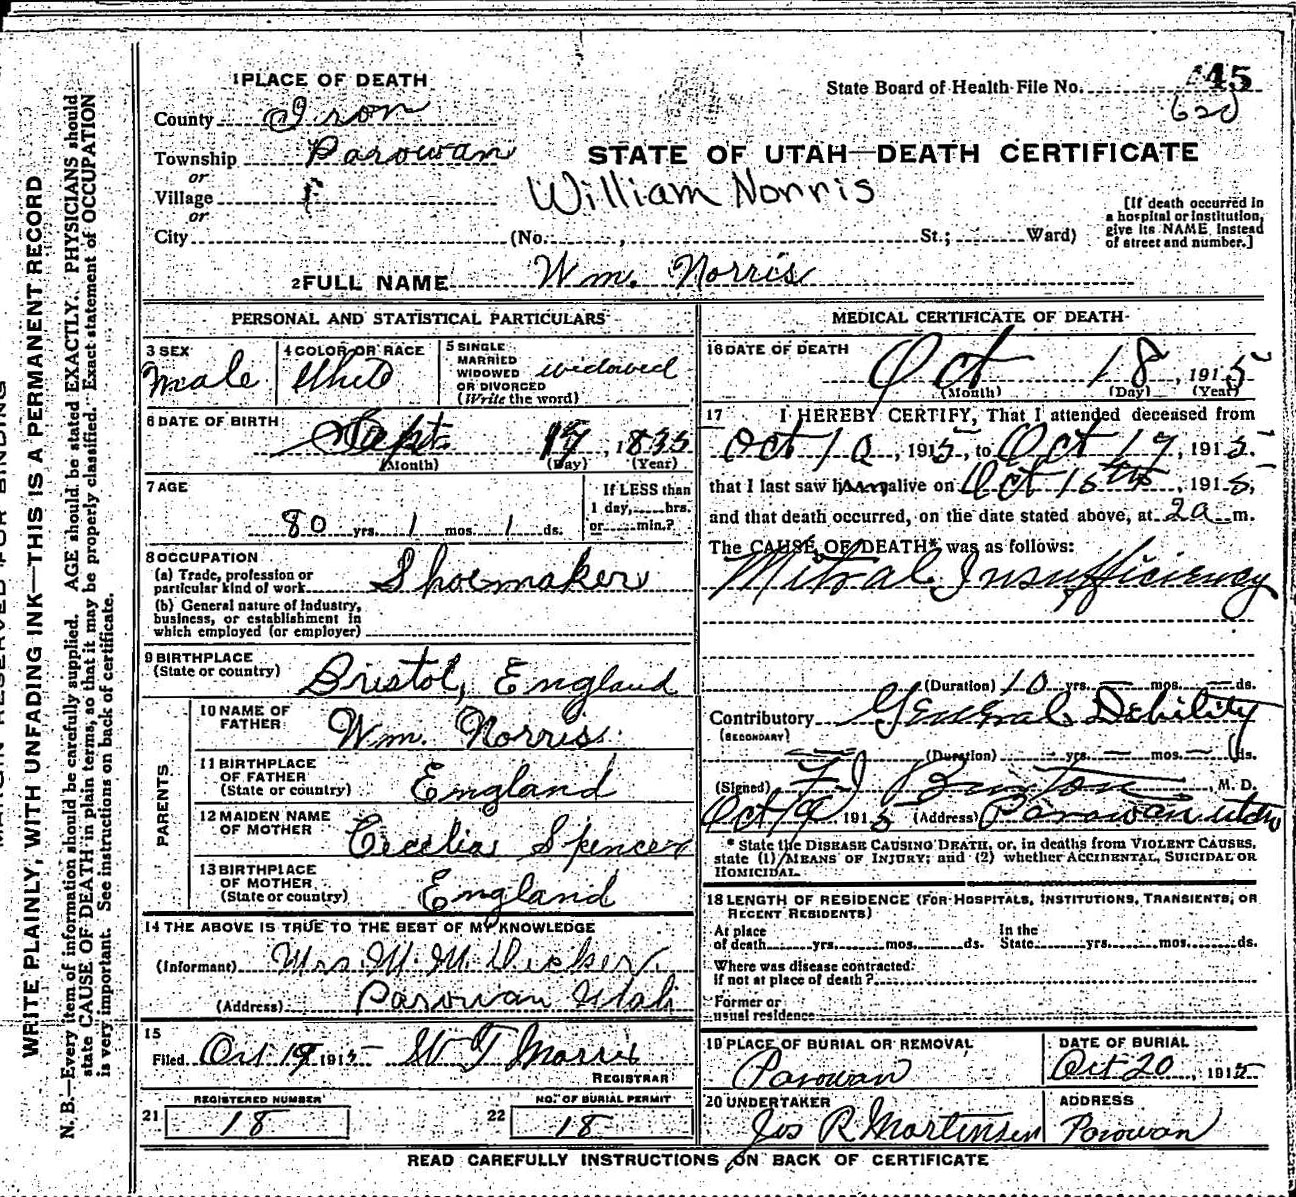 1 PLACE OF DEATH
State Board of Health File No. 45
620
County Iron
Township Parowan
or
Village
or
City (No. , St.; Ward)
STATE OF UTAH—DEATH CERTIFICATE
William Norris
[If death occurred in
a hospital or institution,
give its NAME instead
of street and number.]
2 FULL NAME Wm. Norris
PERSONAL AND STATISTICAL PARTICULARS
3 SEX
Male
4 COLOR OR RACE
White
5 SINGLE
MARRIED
WIDOWED
OR DIVORCED
(Write the word)
widowed
6 DATE OF BIRTH
Sept 17, 1835
(Month) (Day) (Year)
7 AGE
80 yrs. 1 mos. 1 ds.
If LESS than
1 day, hrs.
or min.?
8 OCCUPATION
(a) Trade, profession or
particular kind of work Shoemaker
(b) General nature of industry,
business, or establishment in
which employed (or employer)
9 BIRTHPLACE
(State or country) Bristol, England
PARENTS
10 NAME OF
FATHER Wm. Norris
11 BIRTHPLACE
OF FATHER
(State or country) England
12 MAIDEN NAME
OF MOTHER Cecelia Spencer
13 BIRTHPLACE
OF MOTHER
(State or country) England
14 THE ABOVE IS TRUE TO THE BEST OF MY KNOWLEDGE
(Informant) Mrs. M. M. Decker
(Address) Parowan Utah
15
Filed Oct 19 1915 W T Morris
REGISTRAR
21 REGISTERED NUMBER
18
22 NO. OF BURIAL PERMIT
18
MEDICAL CERTIFICATE OF DEATH
16 DATE OF DEATH
Oct 18, 1915
(Month) (Day) (Year)
17 I HEREBY CERTIFY, That I attended deceased from
Oct 10, 1915, to Oct 17, 1915.
that I last saw him alive on Oct 15th, 1915,
and that death occurred, on the date stated above, at 2 a m.
The CAUSE OF DEATH* was as follows:
Mitral Insufficiency
(Duration) 10 yrs. — mos. — ds.
Contributory General Debility
(SECONDARY)
(Duration) — yrs. — mos. — ds.
(Signed) Burton, M. D.
Oct 19 1915 (Address) Parowan Utah
* State the DISEASE CAUSING DEATH, or, in deaths from VIOLENT CAUSES,
state (1) MEANS OF INJURY; and (2) whether ACCIDENTAL, SUICIDAL OR
HOMICIDAL.
18 LENGTH OF RESIDENCE (FOR HOSPITALS, INSTITUTIONS, TRANSIENTS, OR
RECENT RESIDENTS)
At place
of death yrs. mos. ds.
In the
State yrs. mos. ds.
Where was disease contracted
if not at place of death?
Former or
usual residence
19 PLACE OF BURIAL OR REMOVAL
Parowan
DATE OF BURIAL
Oct 20, 1915
20 UNDERTAKER
Jos R Mortensen
ADDRESS
Parowan
READ CAREFULLY INSTRUCTIONS ON BACK OF CERTIFICATE
MARGIN RESERVED FOR BINDING
WRITE PLAINLY, WITH UNFADING INK—THIS IS A PERMANENT RECORD
N. B.—Every item of information should be carefully supplied. AGE should be stated EXACTLY. PHYSICIANS should
state CAUSE OF DEATH in plain terms, so that it may be properly classified. Exact statement of OCCUPATION
is very important. See instructions on back of certificate.